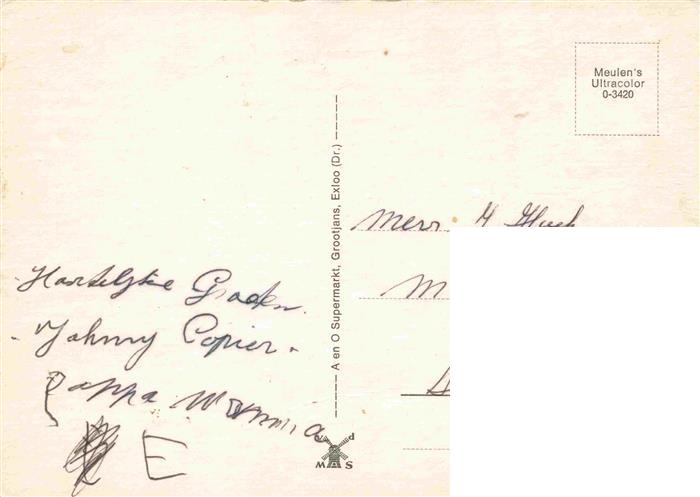 Meulen's
Ultracolor
0-3420
A en O Supermarkt, Grootjans, Exloo (Dr.)
Mevr. H
Hartelijke Groeten.
M
Johnny Copier.
Pappa Mamma
E
MAS